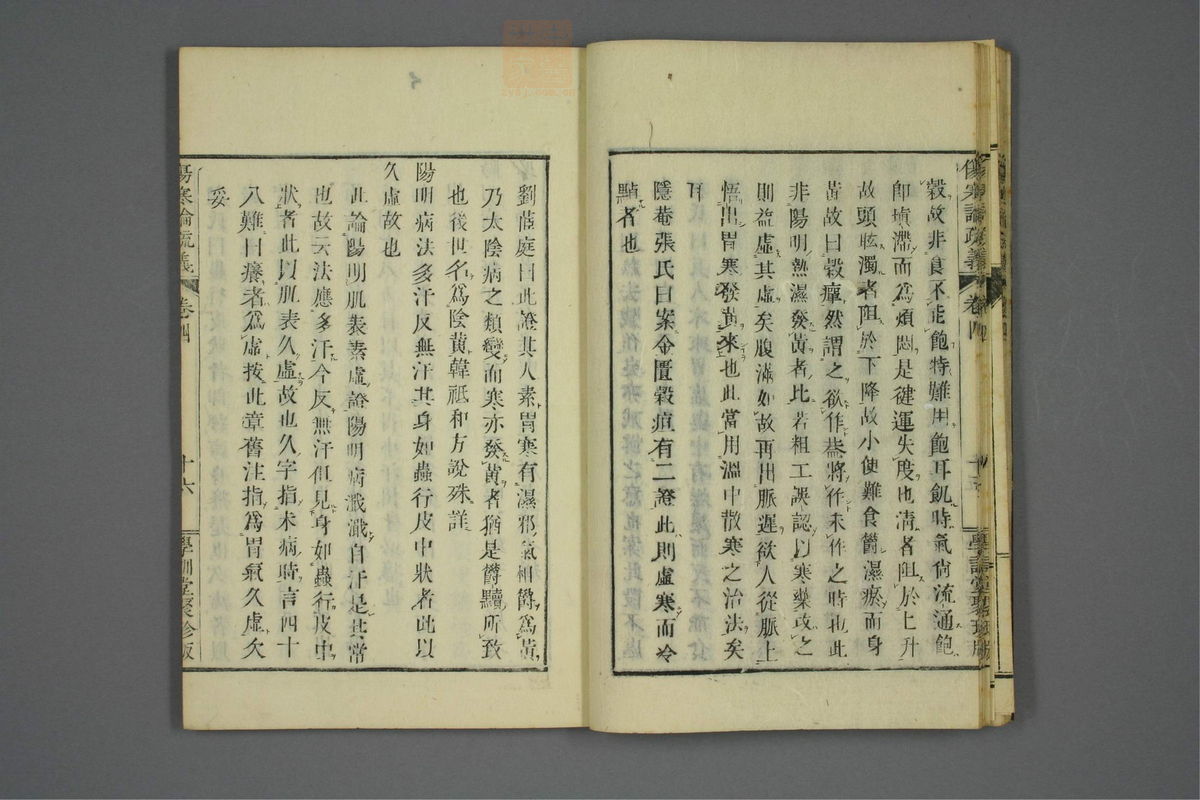 傷寒論疏義 卷四 十五 學訓堂聚珍版
穀故非食不能飽特難用飽耳飢時氣尙流通飽
卽塡滯而爲煩悶是健運失度也淸者阻於上升
故頭眩濁者阻於下降故小便難食鬱濕瘀而身
黃故曰穀癉然謂之欲作蓋將作未作之時也此
非陽明熱濕發黃者比若粗工誤認以寒藥攻之
則益虛其虛矣腹滿如故再出脈遲欲人從脈上
悟出胃寒發黃來也此當用溫中散寒之治法矣
隱菴張氏曰案金匱穀疸有二證此則虛寒而冷
黠者也
劉茝庭曰此證其人素胃寒有濕邪氣相鬱爲黃
乃太陰病之類變而寒亦發黃者猶是鬱黷所致
也後世名爲陰黃韓祗和方說殊詳
陽明病法多汗反無汗其身如蟲行皮中狀者此以
久虛故也
此論陽明肌表素虛證陽明病濈濈自汗是其常
也故云法應多汗今反無汗但見身如蟲行皮中
狀者此以肌表久虛故也久字指未病時言四十
八難曰癢者爲虛按此章舊注指爲胃氣久虛欠
妥
傷寒論疏義 卷四 十六 學訓堂聚珍版